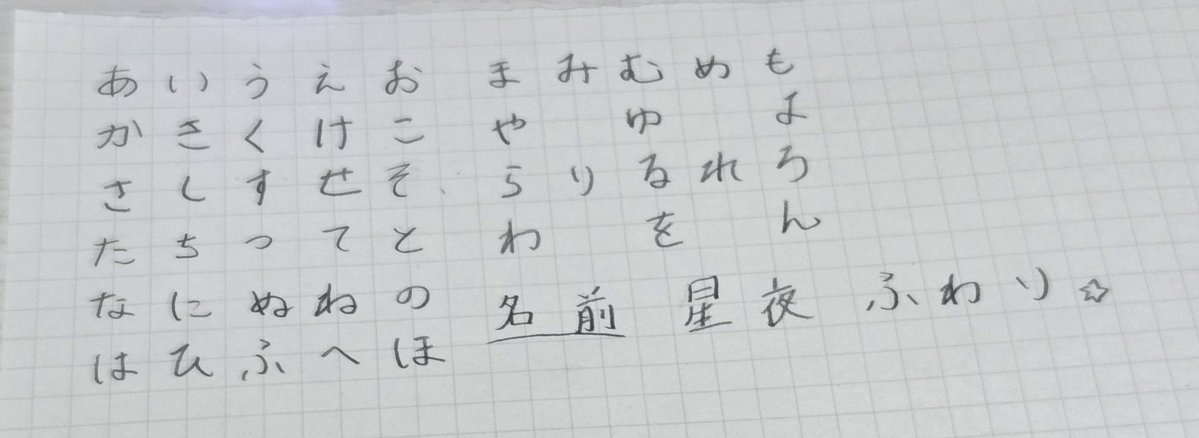 あいうえお
かきくけこ
さしすせそ
たちつてと
なにぬねの
はひふへほ
まみむめも
やゆよ
らりるれろ
わをん
名前 星夜ふわり☆